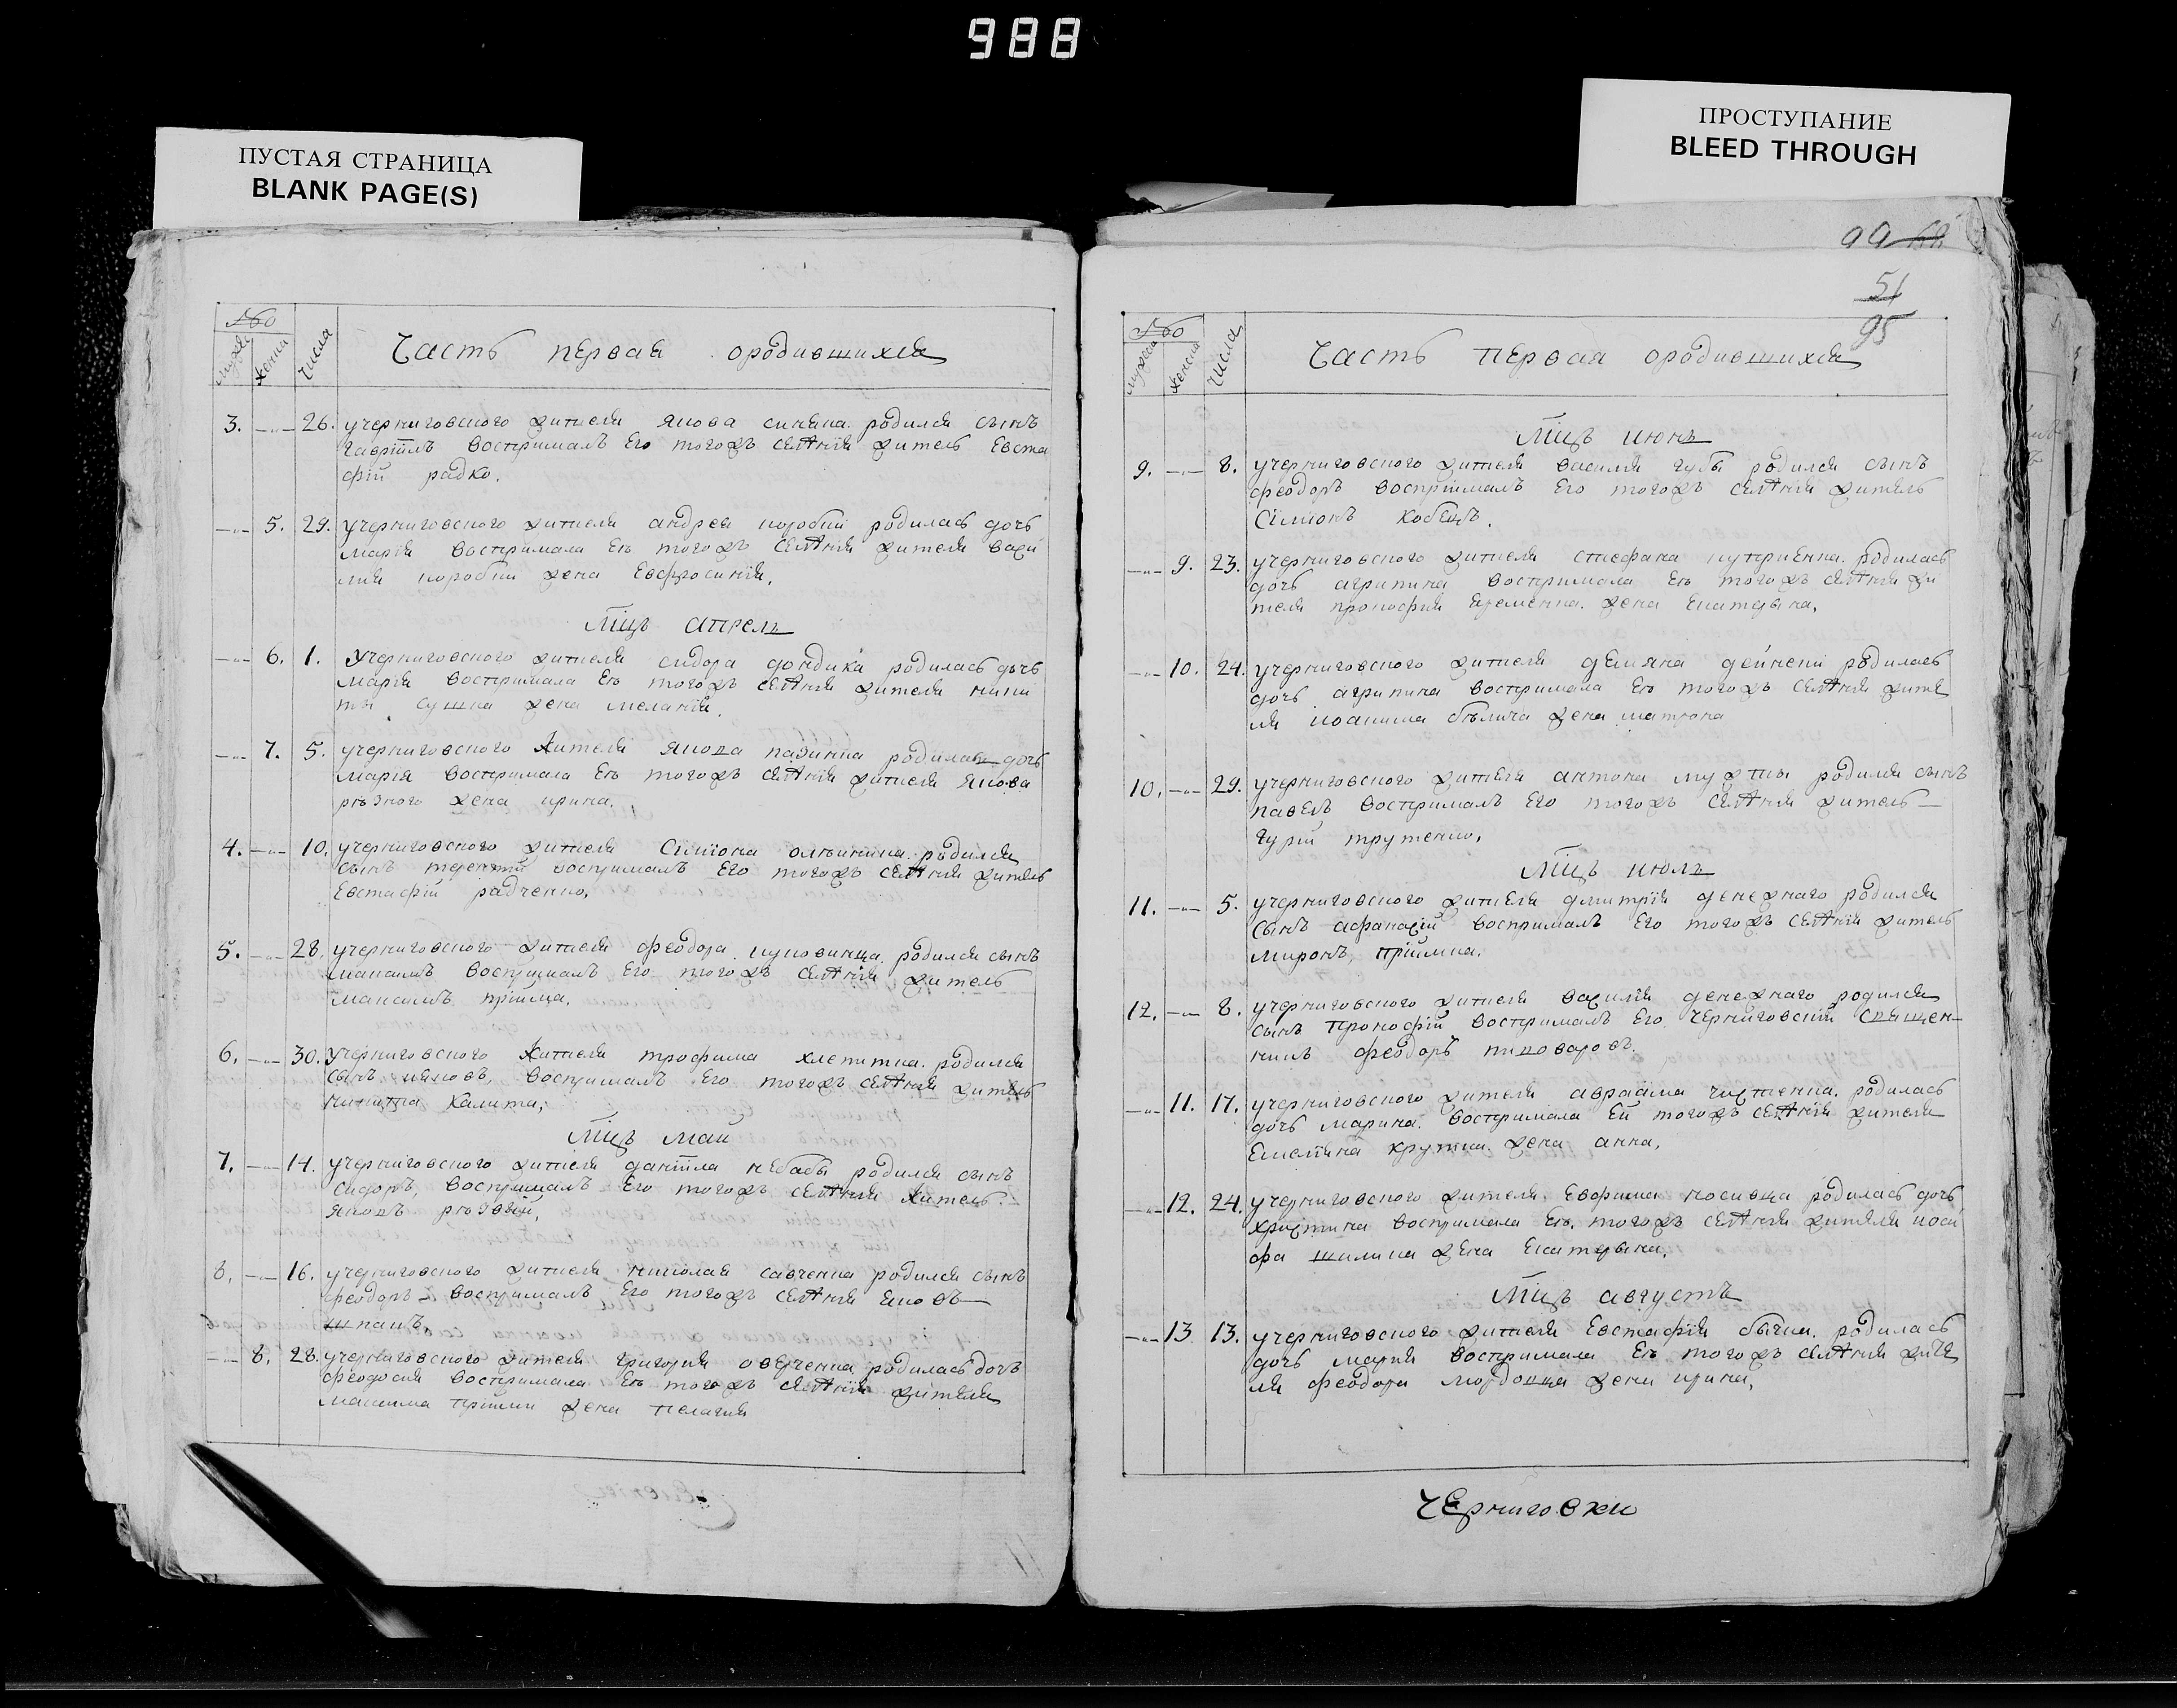 988
ПУСТАЯ СТРАНИЦА
BLANK PAGE(S)
ПРОСТУПАНИЕ
BLEED THROUGH
99
51
95
Часть первая ородившихся
числа
3. 26. учерниговского жителя якова родился сынъ
гавріилъ воспрималъ его тогожъ селѣнія житель Евста
фій радко.
5. 29. учерниговского жителя андрея коробки родилась дочь
марія воспримала ею тогожъ селѣнія жителя васи
лия коробки жена Евфросинія.
Мцъ апрель
6. 1. Учерниговского жителя сидора дондика родилась дочь
марія воспримала ею тогожъ селѣнія жителя ники
ты сушка жена меланія.
7. 5. учерниговского жителя якова родилась дочь
марія воспримала ею тогожъ селѣнія жителя якова
рѣзного жена ирина.
4. 10. учерниговского жителя Сіміона родился
сынъ терентій воспрималъ его тогожъ селѣнія житель
Евстафій радченко.
5. 28. учерниговского жителя феодора родился сынъ
максимъ воспрималъ его тогожъ селѣнія житель
максимъ прійма.
6. 30. Учерниговского жителя трофима родился
сынъ яковъ, воспрималъ его тогожъ селѣнія житель
никита калита.
Мцъ май
7. 14. учерниговского жителя даніила небабы родился сынъ
сидоръ, воспрималъ его тогожъ селѣнія житель
яковъ рѣзвій.
8. 16. учерниговского жителя николая савченка родился сынъ
феодоръ воспрималъ его тогожъ селѣнія яковъ
шпакъ.
8. 28. учерниговского жителя григория оверченка родилась дочь
феодосия воспримала ею тогожъ селѣнія жителя
максима прійми жена пелагия
Часть первая ородившихся
числа
Мцъ июнь
9. 8. учерниговского жителя василия губы родился сынъ
феодоръ воспріималъ его тогожъ селѣнія житель
Сіміонъ кобецъ.
9. 23. учерниговского жителя стефана родилась
дочь агрипина воспримала ею тогожъ селѣнія жи
теля прокофия Еременка жена Екатерина.
10. 24. учерниговского жителя деміяна дейнеки родилась
дочь агрипина воспримала ею тогожъ селѣнія жите
ля иоакима бѣлича жена матрона
10. 29. учерниговского жителя антона родился сынъ
павелъ воспрималъ его тогожъ селѣнія житель
гурій трутенко.
Мцъ июль
11. 5. учерниговского жителя дмитрія денежнаго родился
сынъ афанасій воспрималъ его тогожъ селѣнія житель
миронъ прійма.
12. 8. учерниговского жителя василія денежнаго родился
сынъ прокофій воспрималъ его черниговскій священ
никъ феодоръ пивоваровъ.
11. 17. учерниговского жителя авраама родилась
дочь марина воспримала ей тогожъ селѣнія жителя
Емелияна крутка жена анна.
12. 24. учерниговского жителя Евфима носивца родилась дочь
христина воспримала ею тогожъ селѣнія жителя иоси
фа шилика жена Екатерина.
Мцъ августъ
13 13. учерниговского жителя Евстафія бычка родилась
дочь мария воспримала ею тогожъ селѣнія жите
ля феодора жена ирина.
Черниговки